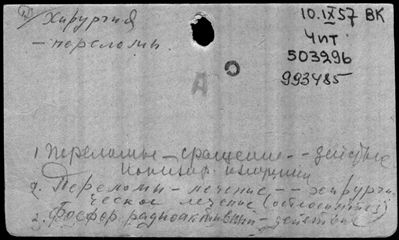 Хирургия
— переломы.
10.IX57 ВК
Чит
503296
993485
А
1. Переломы — сращение — действие
2. Переломы — лечение — — хирурги-
ческое лечение (остеосинтез)
2. Фосфор радиоактивный — действие